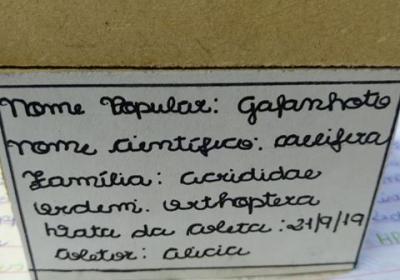 Nome Popular: Gafanhoto
nome científico: caelifera
Família: acrididae
ordem: orthoptera
Data da Coleta: 21/9/19
Coletor: alicia